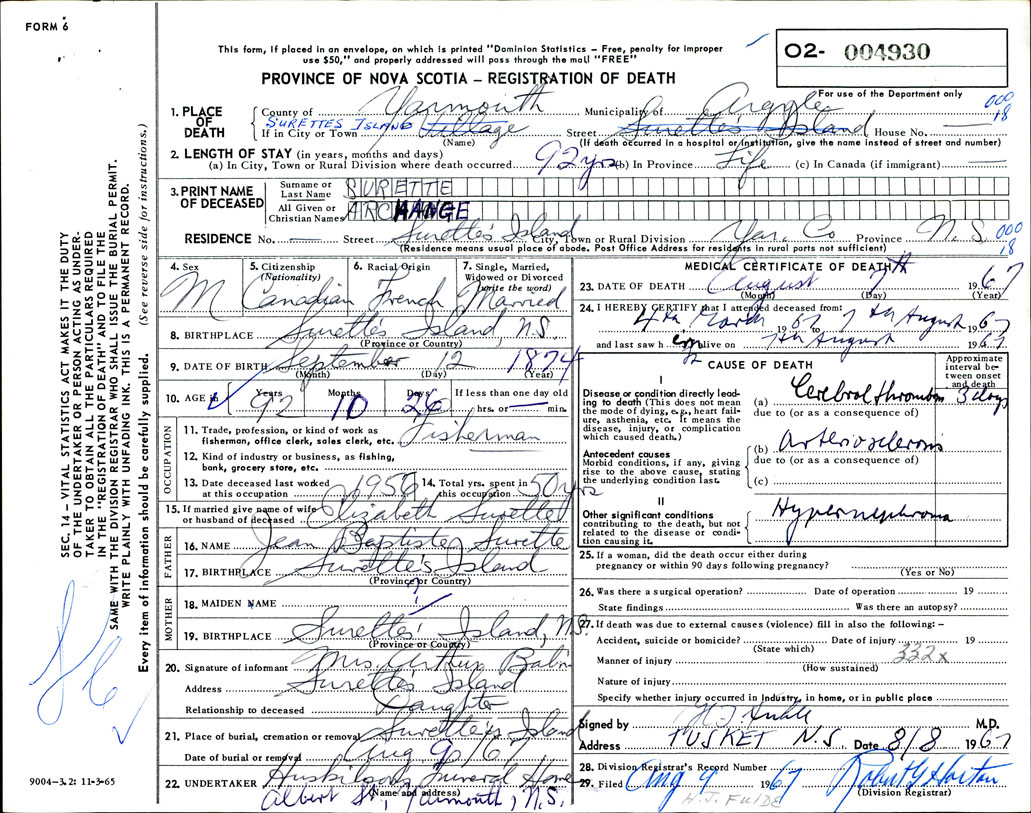 FORM 6
This form, if placed in an envelope, on which is printed "Dominion Statistics – Free, penalty for improper
use $50," and properly addressed will pass through the mail "FREE"
02- 004930
For use of the Department only
PROVINCE OF NOVA SCOTIA – REGISTRATION OF DEATH
1. PLACE OF DEATH
County of Yarmouth Municipality of Argyle
000 18
SURETTES ISLAND
If in City or Town Village Street Surette's Island House No. —
(Name) (If death occurred in a hospital or institution, give the name instead of street and number)
2. LENGTH OF STAY (in years, months and days)
(a) In City, Town or Rural Division where death occurred 92 yrs (b) In Province Life (c) In Canada (if immigrant) —
3. PRINT NAME OF DECEASED
Surname or Last Name SURETTE
All Given or Christian Names ARCHANGE
RESIDENCE No. — Street Surette's Island City, Town or Rural Division Yar. Co Province N.S.
000 18
(Residence means usual place of abode. Post Office Address for residents in rural parts not sufficient)
4. Sex M
5. Citizenship (Nationality) Canadian
6. Racial Origin French
7. Single, Married, Widowed or Divorced (write the word) Married
8. BIRTHPLACE Surette's Island, N.S.
(Province or County)
9. DATE OF BIRTH September 12 1874
(Month) (Day) (Year)
10. AGE in Years 92 Months 10 Days 26 If less than one day old
hrs. or — min.
OCCUPATION
11. Trade, profession, or kind of work as
fisherman, office clerk, sales clerk, etc. Fisherman
12. Kind of industry or business, as fishing,
bank, grocery store, etc.
13. Date deceased last worked at this occupation 1956
14. Total yrs. spent in this occupation 50 yrs
15. If married give name of wife or husband of deceased Elizabeth Surette
FATHER
16. NAME Jean Baptiste Surette
17. BIRTHPLACE Surette's Island
(Province or Country)
MOTHER
18. MAIDEN NAME ?
19. BIRTHPLACE Surette's Island, N.S.
(Province or Country)
20. Signature of informant Mrs. Arthur Babin
Address Surette's Island
Relationship to deceased Daughter
21. Place of burial, cremation or removal Surette's Island
Date of burial or removal Aug 9/67
22. UNDERTAKER Huskilson's Funeral Home
(Name and address)
Albert St., Yarmouth, N.S.
MEDICAL CERTIFICATE OF DEATH
23. DATE OF DEATH August 7th 1967
(Month) (Day) (Year)
24. I HEREBY CERTIFY that I attended deceased from:
4th March 1967 to 7th August 1967
and last saw h alive on 7th August 1967
CAUSE OF DEATH
Approximate interval between onset and death
I
Disease or condition directly leading to death (This does not mean
the mode of dying, e.g., heart failure, asthenia, etc. It means the
disease, injury, or complication which caused death.)
(a) Cerebral thrombosis 3 days
due to (or as a consequence of)
Antecedent causes
Morbid conditions, if any, giving
rise to the above cause, stating
the underlying condition last.
(b) Arteriosclerosis
due to (or as a consequence of)
(c)
II
Other significant conditions
contributing to the death, but not
related to the disease or condition causing it.
Hypernephroma
25. If a woman, did the death occur either during
pregnancy or within 90 days following pregnancy?
(Yes or No)
26. Was there a surgical operation? Date of operation 19
State findings Was there an autopsy?
27. If death was due to external causes (violence) fill in also the following: –
Accident, suicide or homicide? Date of injury 19
(State which)
332x
Manner of injury
(How sustained)
Nature of injury
Specify whether injury occurred in industry, in home, or in public place
Signed by M.D.
Address TUSKET N.S. Date 8/8 1967
28. Division Registrar's Record Number
29. Filed Aug 9 1967 Robert G Horton
(Division Registrar)
H.J. FULDE
SEC. 14 – VITAL STATISTICS ACT MAKES IT THE DUTY
OF THE UNDERTAKER OR PERSON ACTING AS UNDER-
TAKER TO OBTAIN ALL THE PARTICULARS REQUIRED
IN THE "REGISTRATION OF DEATH" AND TO FILE THE
SAME WITH THE DIVISION REGISTRAR WHO SHALL ISSUE THE BURIAL PERMIT.
WRITE PLAINLY WITH UNFADING INK. THIS IS A PERMANENT RECORD.
Every item of information should be carefully supplied. (See reverse side for instructions.)
9004–3.2: 11-3-65